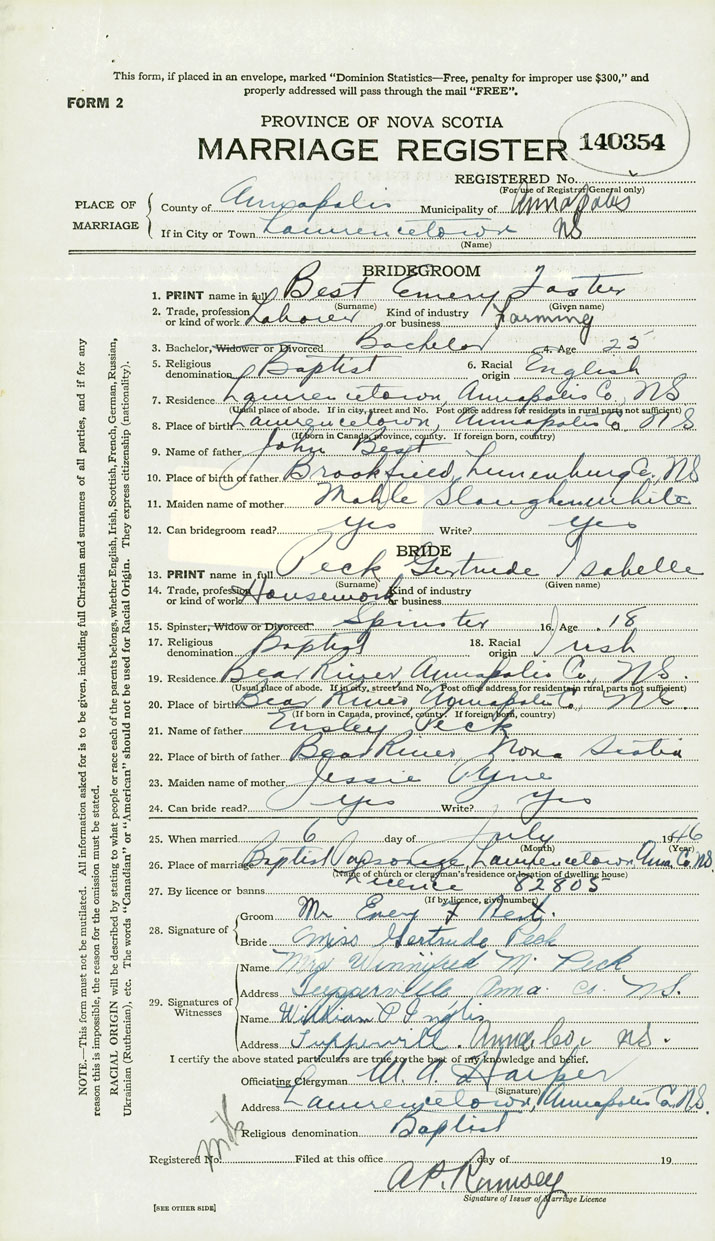 This form, if placed in an envelope, marked "Dominion Statistics—Free, penalty for improper use $300," and
properly addressed will pass through the mail "FREE".
FORM 2
PROVINCE OF NOVA SCOTIA
MARRIAGE REGISTER 140354
REGISTERED No.
(For use of Registrar General only)
PLACE OF MARRIAGE
County of Annapolis Municipality of Annapolis
If in City or Town Lawrencetown NS
(Name)
BRIDEGROOM
1. PRINT name in full Best Emery Foster
(Surname) (Given name)
2. Trade, profession or kind of work Laborer Kind of industry or business Farming
3. Bachelor, Widower or Divorced Bachelor 4. Age 25
5. Religious denomination Baptist 6. Racial origin English
7. Residence Lawrencetown, Annapolis Co, NS
(Usual place of abode. If in city, street and No. Post office address for residents in rural parts not sufficient)
8. Place of birth Lawrencetown, Annapolis Co, NS
(If born in Canada, province, county. If foreign born, country)
9. Name of father John Best
10. Place of birth of father Brookfield, Lunenburg Co, NS
11. Maiden name of mother Mable Slaughenwhite
12. Can bridegroom read? yes Write? yes
BRIDE
13. PRINT name in full Peck Gertrude Isabelle
(Surname) (Given name)
14. Trade, profession or kind of work Housework Kind of industry or business
15. Spinster, Widow or Divorced Spinster 16. Age 18
17. Religious denomination Baptist 18. Racial origin Irish
19. Residence Bear River, Annapolis Co, NS.
(Usual place of abode. If in city, street and No. Post office address for residents in rural parts not sufficient)
20. Place of birth Bear River Annapolis Co, NS.
(If born in Canada, province, county. If foreign born, country)
21. Name of father Ensley Peck
22. Place of birth of father Bear River, Nova Scotia
23. Maiden name of mother Jessie Pyne
24. Can bride read? yes Write? yes
25. When married 6 day of July 1946
(Month) (Year)
26. Place of marriage Baptist Parsonage, Lawrencetown Anna Co NS.
(Name of church or clergyman's residence or location of dwelling house)
27. By licence or banns Licence 82805
(If by licence, give number)
28. Signature of
Groom Mr Emery F Best.
Bride Miss Gertrude Peck
29. Signatures of Witnesses
Name Mrs Winnifred M. Peck
Address Tupperville Anna. Co. NS.
Name William P Inglis
Address Tuppervill. Anna Co. NS.
I certify the above stated particulars are true to the best of my knowledge and belief.
Officiating Clergyman W. A. Harper
(Signature)
Address Lawrencetown, Annapolis Co. NS.
Religious denomination Baptist
Registered No. Filed at this office day of 19
A P. Rumsey
Signature of Issuer of Marriage Licence
[SEE OTHER SIDE]
NOTE.—This form must not be mutilated. All information asked for is to be given, including full Christian and surnames of all parties, and if for any
reason this is impossible, the reason for the omission must be stated.
RACIAL ORIGIN will be described by stating to what people or race each of the parents belongs, whether English, Irish, Scottish, French, German, Russian,
Ukrainian (Ruthenian), etc. The words "Canadian" or "American" should not be used for Racial Origin. They express citizenship (nationality).